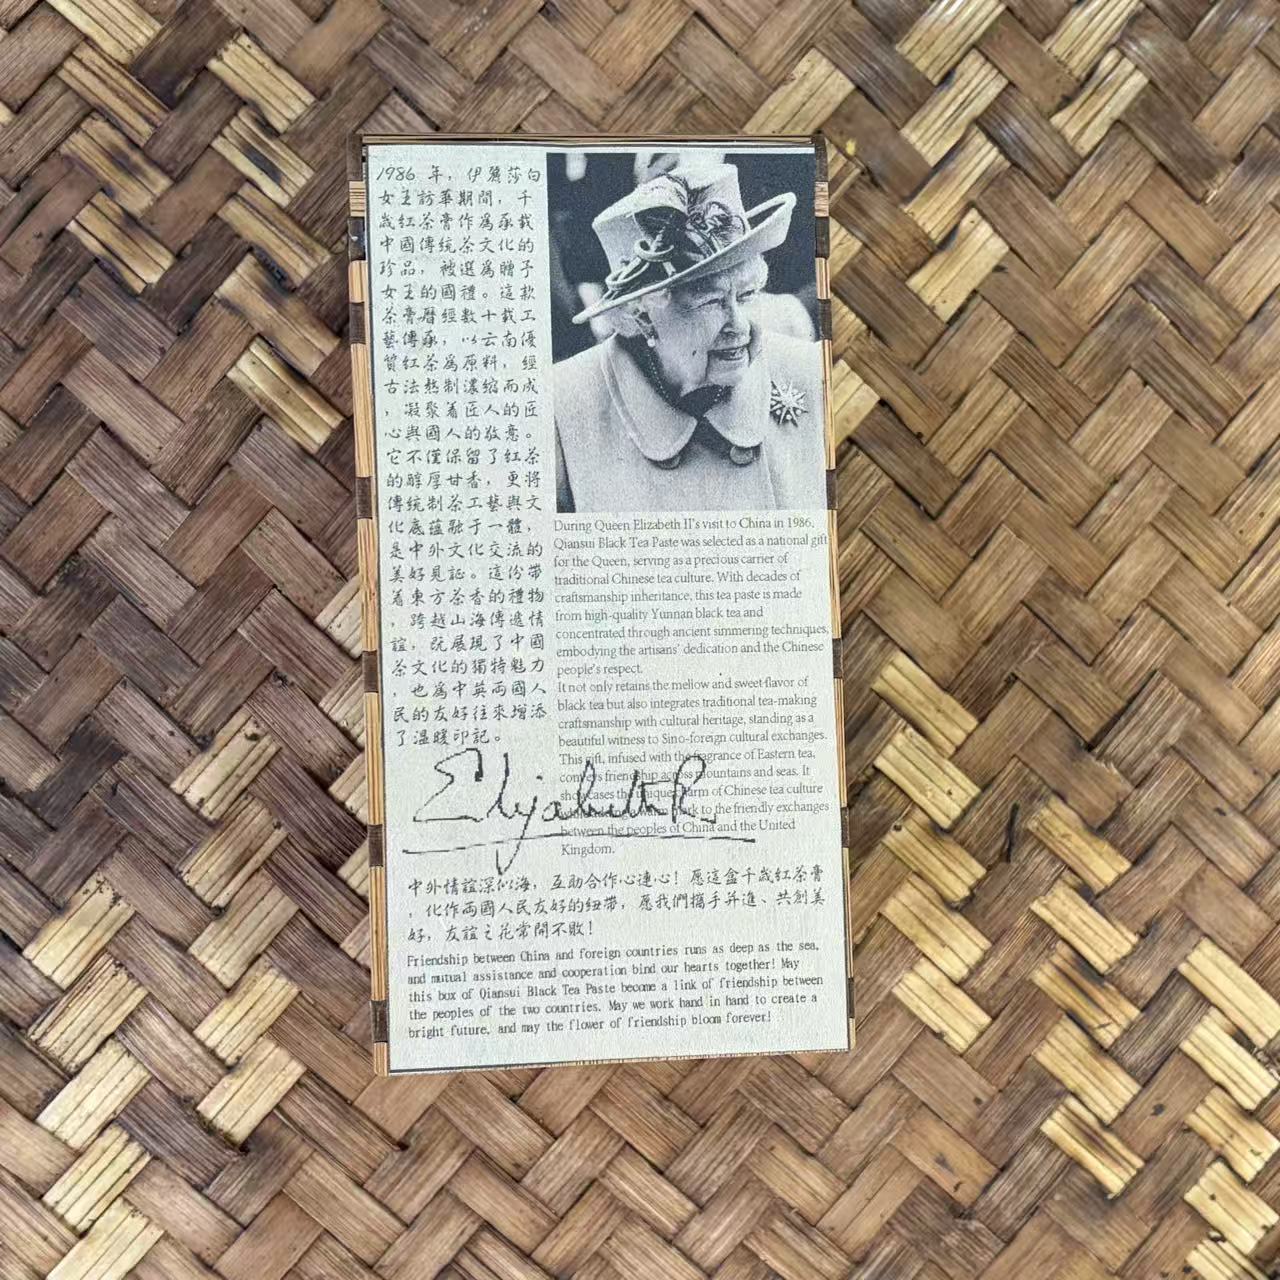 1986 年，伊麗莎白
女王訪華期間，千
歲紅茶膏作為承載
中國傳統茶文化的
珍品，被選為贈予
女王的國禮。這款
茶膏曆經數十載工
藝傳承，以云南優
質紅茶為原料，經
古法熬制濃縮而成
，凝聚着匠人的匠
心與國人的敬意。
它不僅保留了紅茶
的醇厚甘香，更將
傳統制茶工藝與文
化底蘊融于一體，
是中外文化交流的
美好見証。這份帶
着東方茶香的禮物
，跨越山海傳遞情
誼，既展現了中國
茶文化的獨特魅力
，也為中英両國人
民的友好往來增添
了溫暖印記。
During Queen Elizabeth II's visit to China in 1986,
Qiansui Black Tea Paste was selected as a national gift
for the Queen, serving as a precious carrier of
traditional Chinese tea culture. With decades of
craftsmanship inheritance, this tea paste is made
from high-quality Yunnan black tea and
concentrated through ancient simmering techniques,
embodying the artisans' dedication and the Chinese
people's respect.
It not only retains the mellow and sweet flavor of
black tea but also integrates traditional tea-making
craftsmanship with cultural heritage, standing as a
beautiful witness to Sino-foreign cultural exchanges.
This gift, infused with the fragrance of Eastern tea,
conveys friendship across mountains and seas. It
showcases the unique charm of Chinese tea culture
warm mark to the friendly exchanges
between the peoples of China and the United
Kingdom.
Elizabeth R
中外情誼深似海，互助合作心連心！愿這盒千歲紅茶膏
，化作両國人民友好的紐帶，愿我們攜手并進、共創美
好，友誼之花常開不敗！
Friendship between China and foreign countries runs as deep as the sea,
and mutual assistance and cooperation bind our hearts together! May
this box of Qiansui Black Tea Paste become a link of friendship between
the peoples of the two countries. May we work hand in hand to create a
bright future, and may the flower of friendship bloom forever!